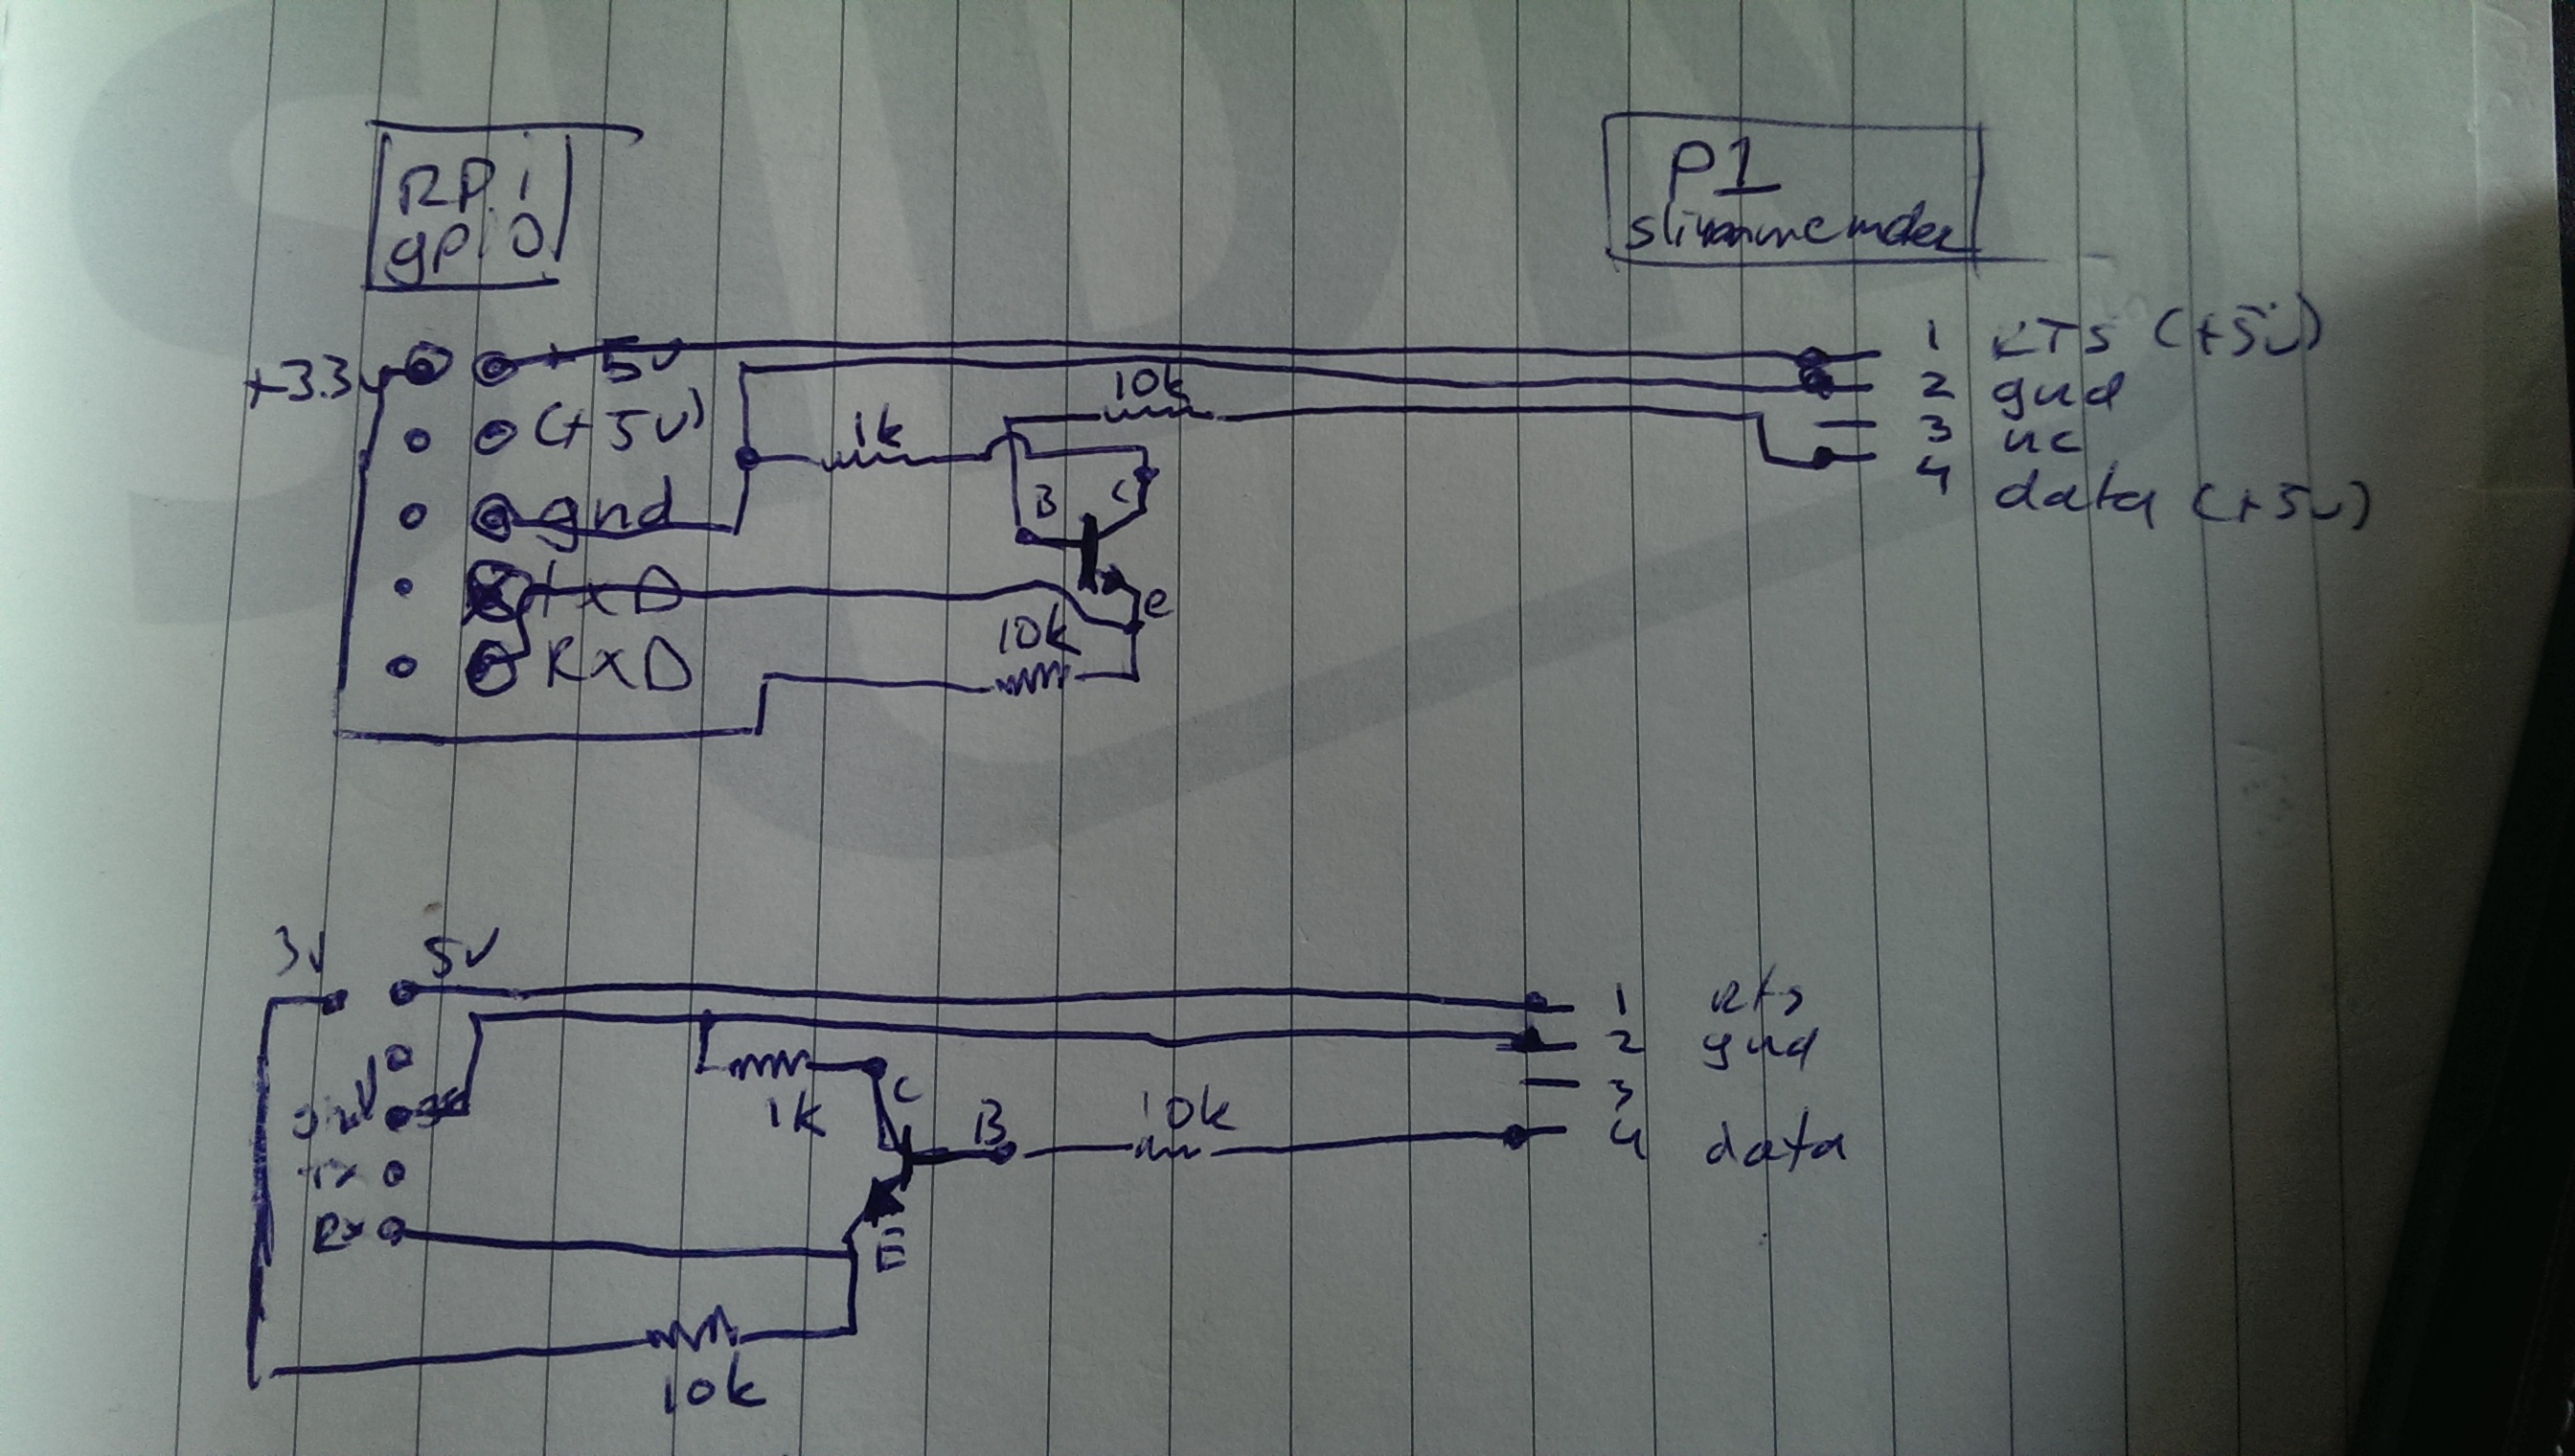 RPi
gpio
P1
slimme meter
+3.3v
+5v
(+5v)
gnd
TxD
RxD
1k
10k
B
C
e
10k
1 RTS (+5v)
2 gnd
3 nc
4 data (+5v)
3V
5V
gnd
Tx
Rx
1k
C
B
10k
E
10k
1 Rts
2 gnd
3
4 data